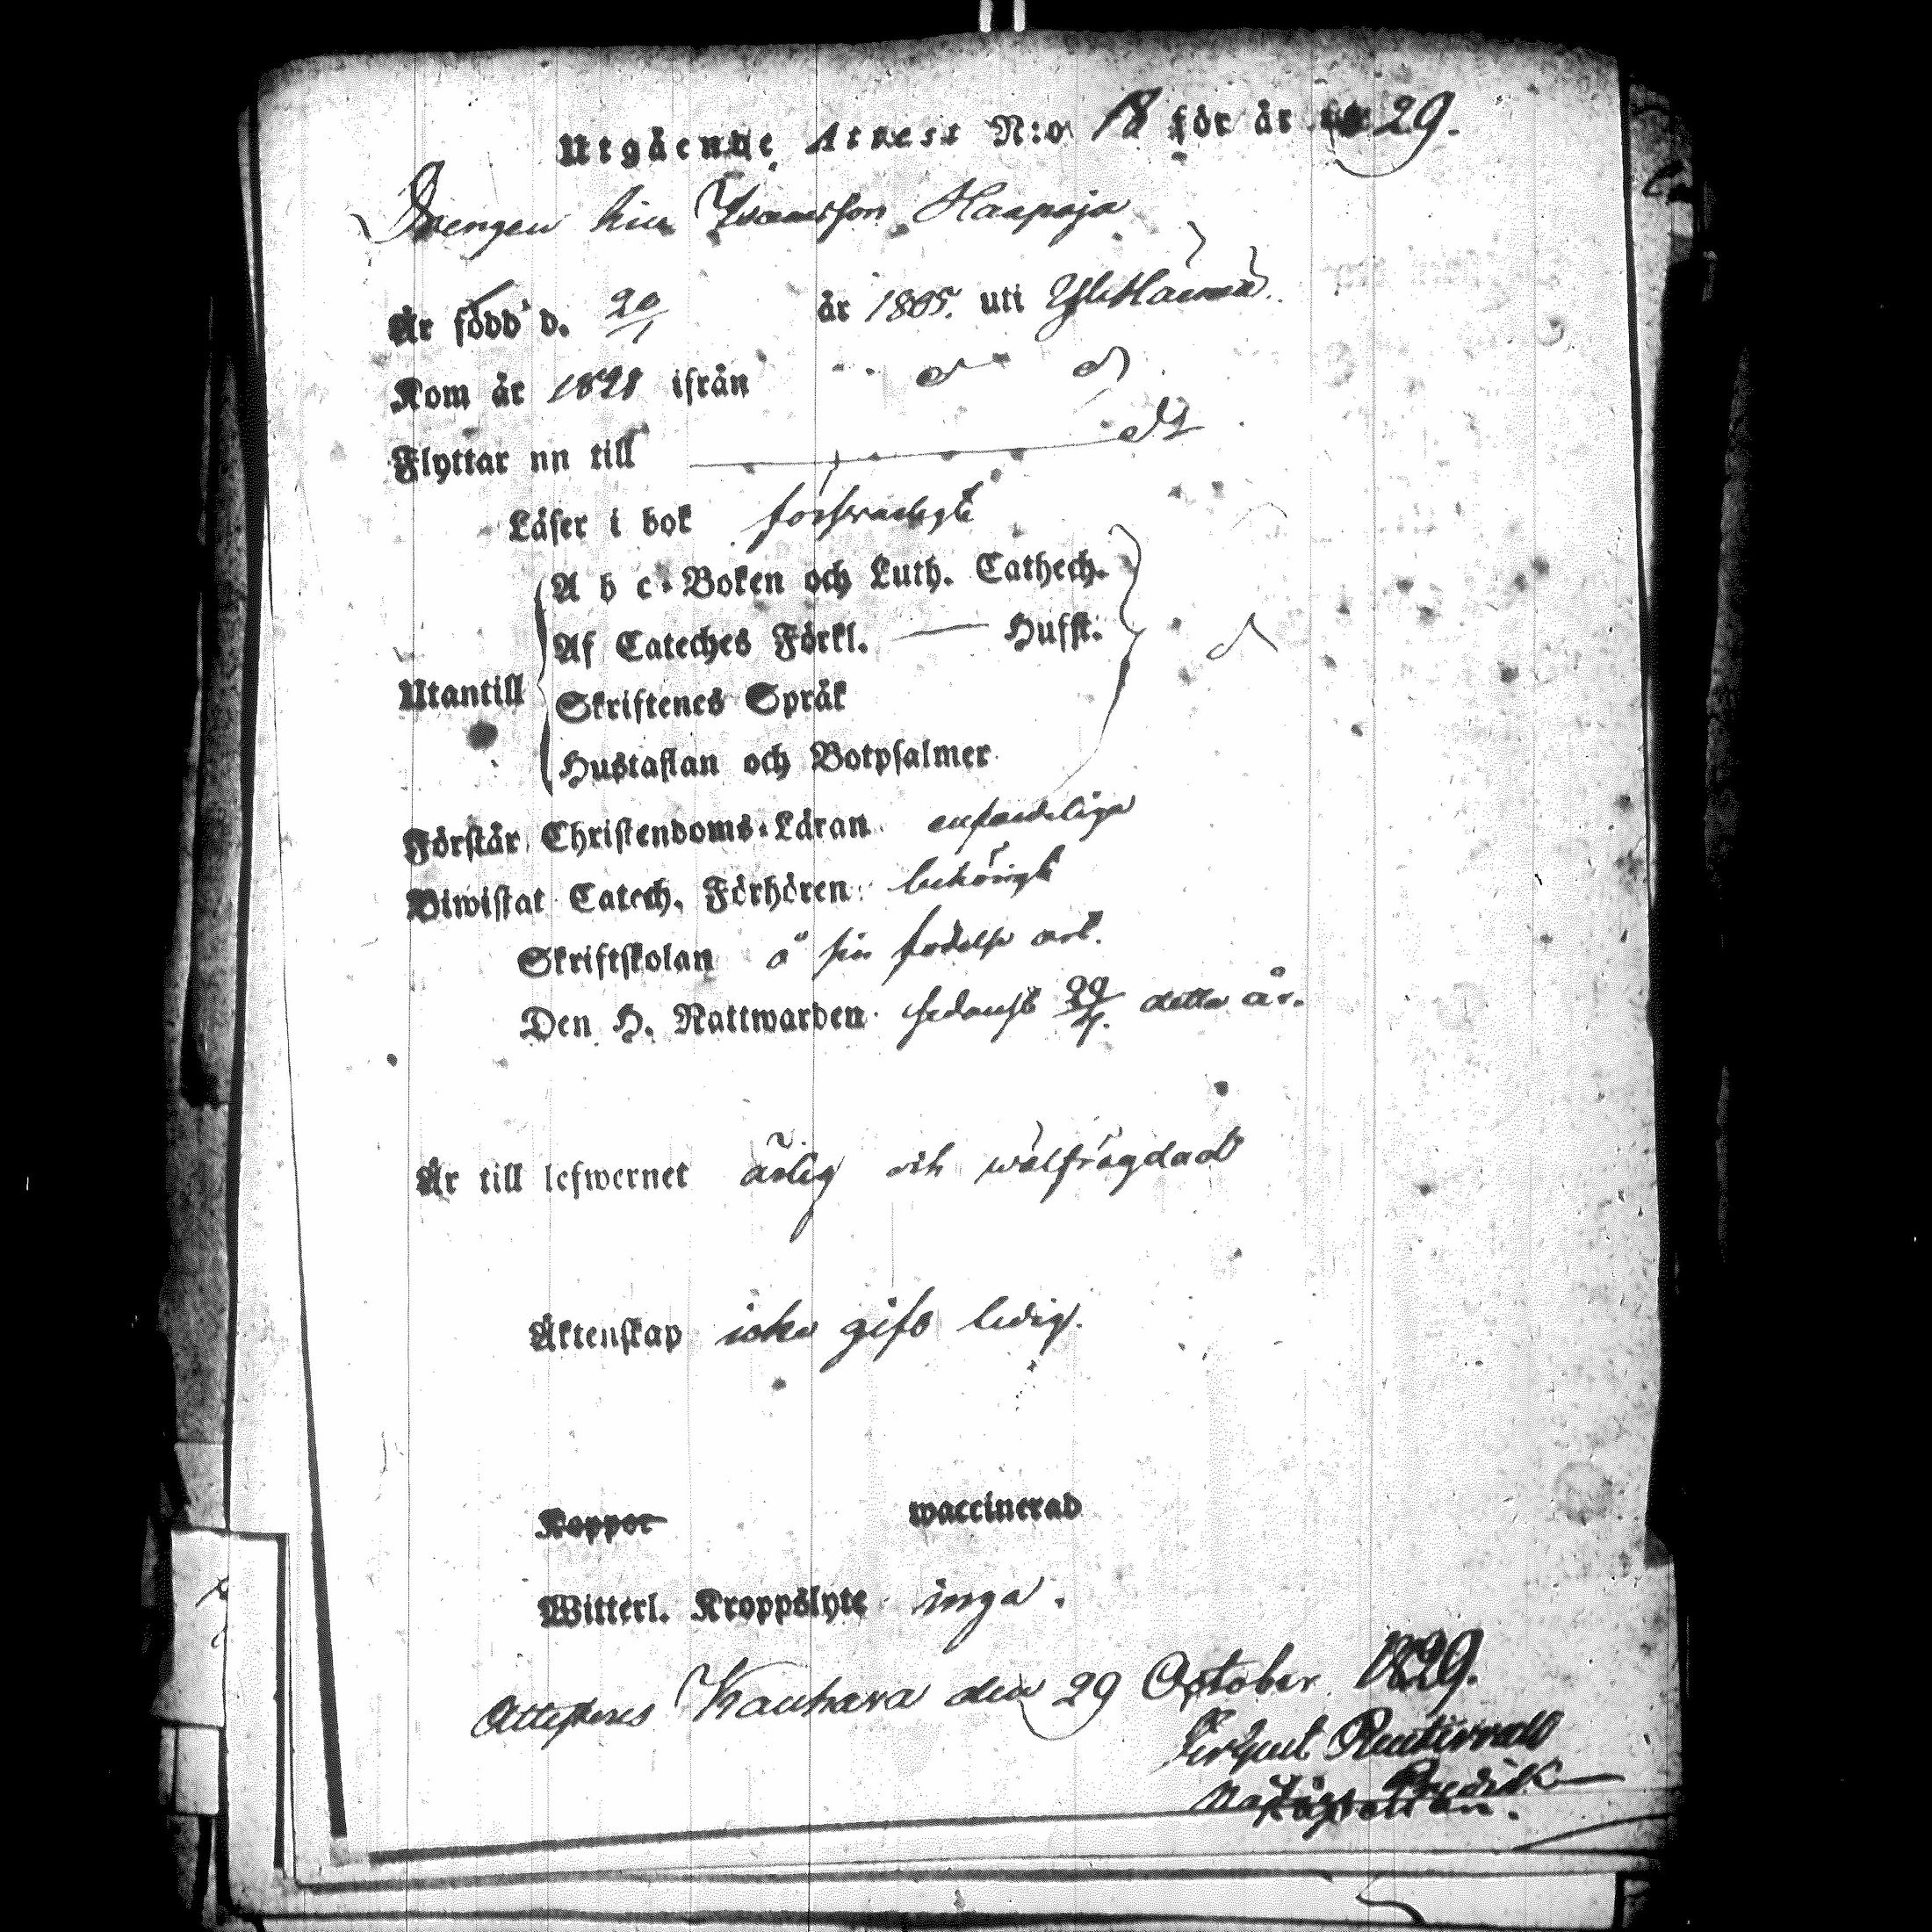 Utgående Attest N:o 18 för år 1829.
Drengen Haapoja
Är född d. 20/1 år 1805. uti
Kom år 1828 ifrån d d
Flyttar nu till d
Läser i bok försvarligt
A b c-Boken och Luth. Cathech.
Af Cateches Förkl. — Husst.
Utantill
Skriftenes Språk
Hustaflan och Botpsalmer
Förstår Christendoms-Läran
Biwistat Catech. Förhören behörigt
Skriftskolan å sin födelse ort.
Den H. Nattwarden sedanst detta år.
Är till lefwernet ärlig och wälfrägdad
Äktenskap icke gift ledig.
Koppor waccinerad
Witterl. Kroppslyte inga.
Attesteras Kauhava den 29 October 1829.